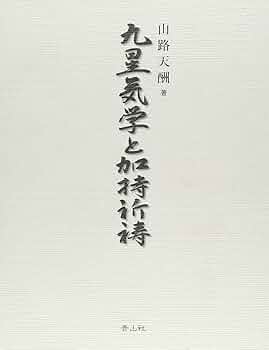 山路天酬 著
九星気学と加持祈祷
青山社